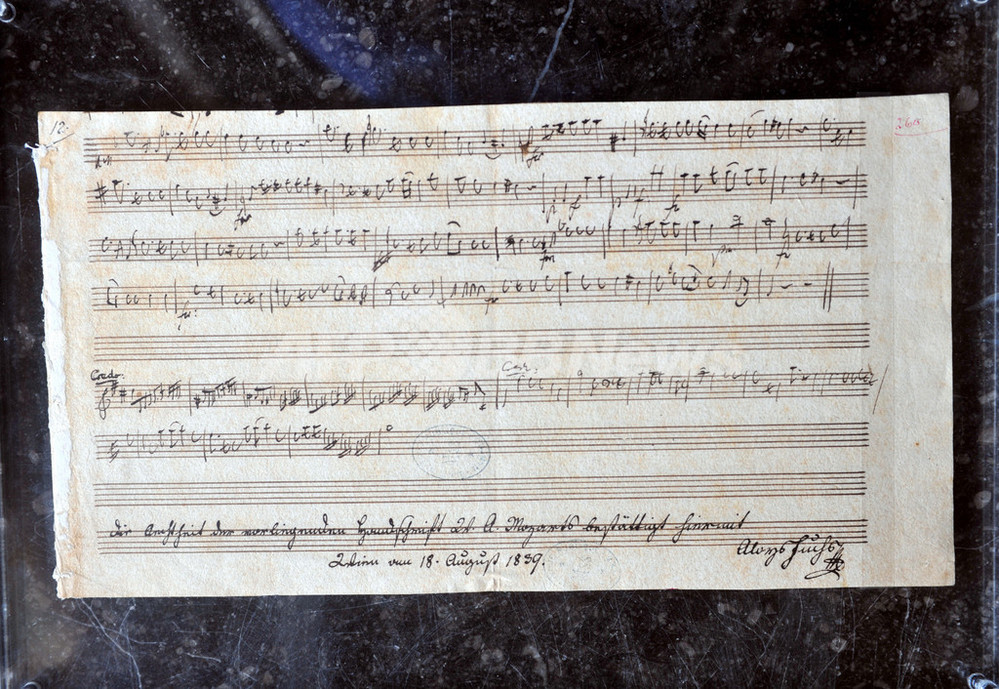 12.
Credo.
die Aechtheit der vorliegenden Handschrift W. A. Mozarts bestättigt hiermit
Wien am 18. August 1839.
Aloys Fuchs